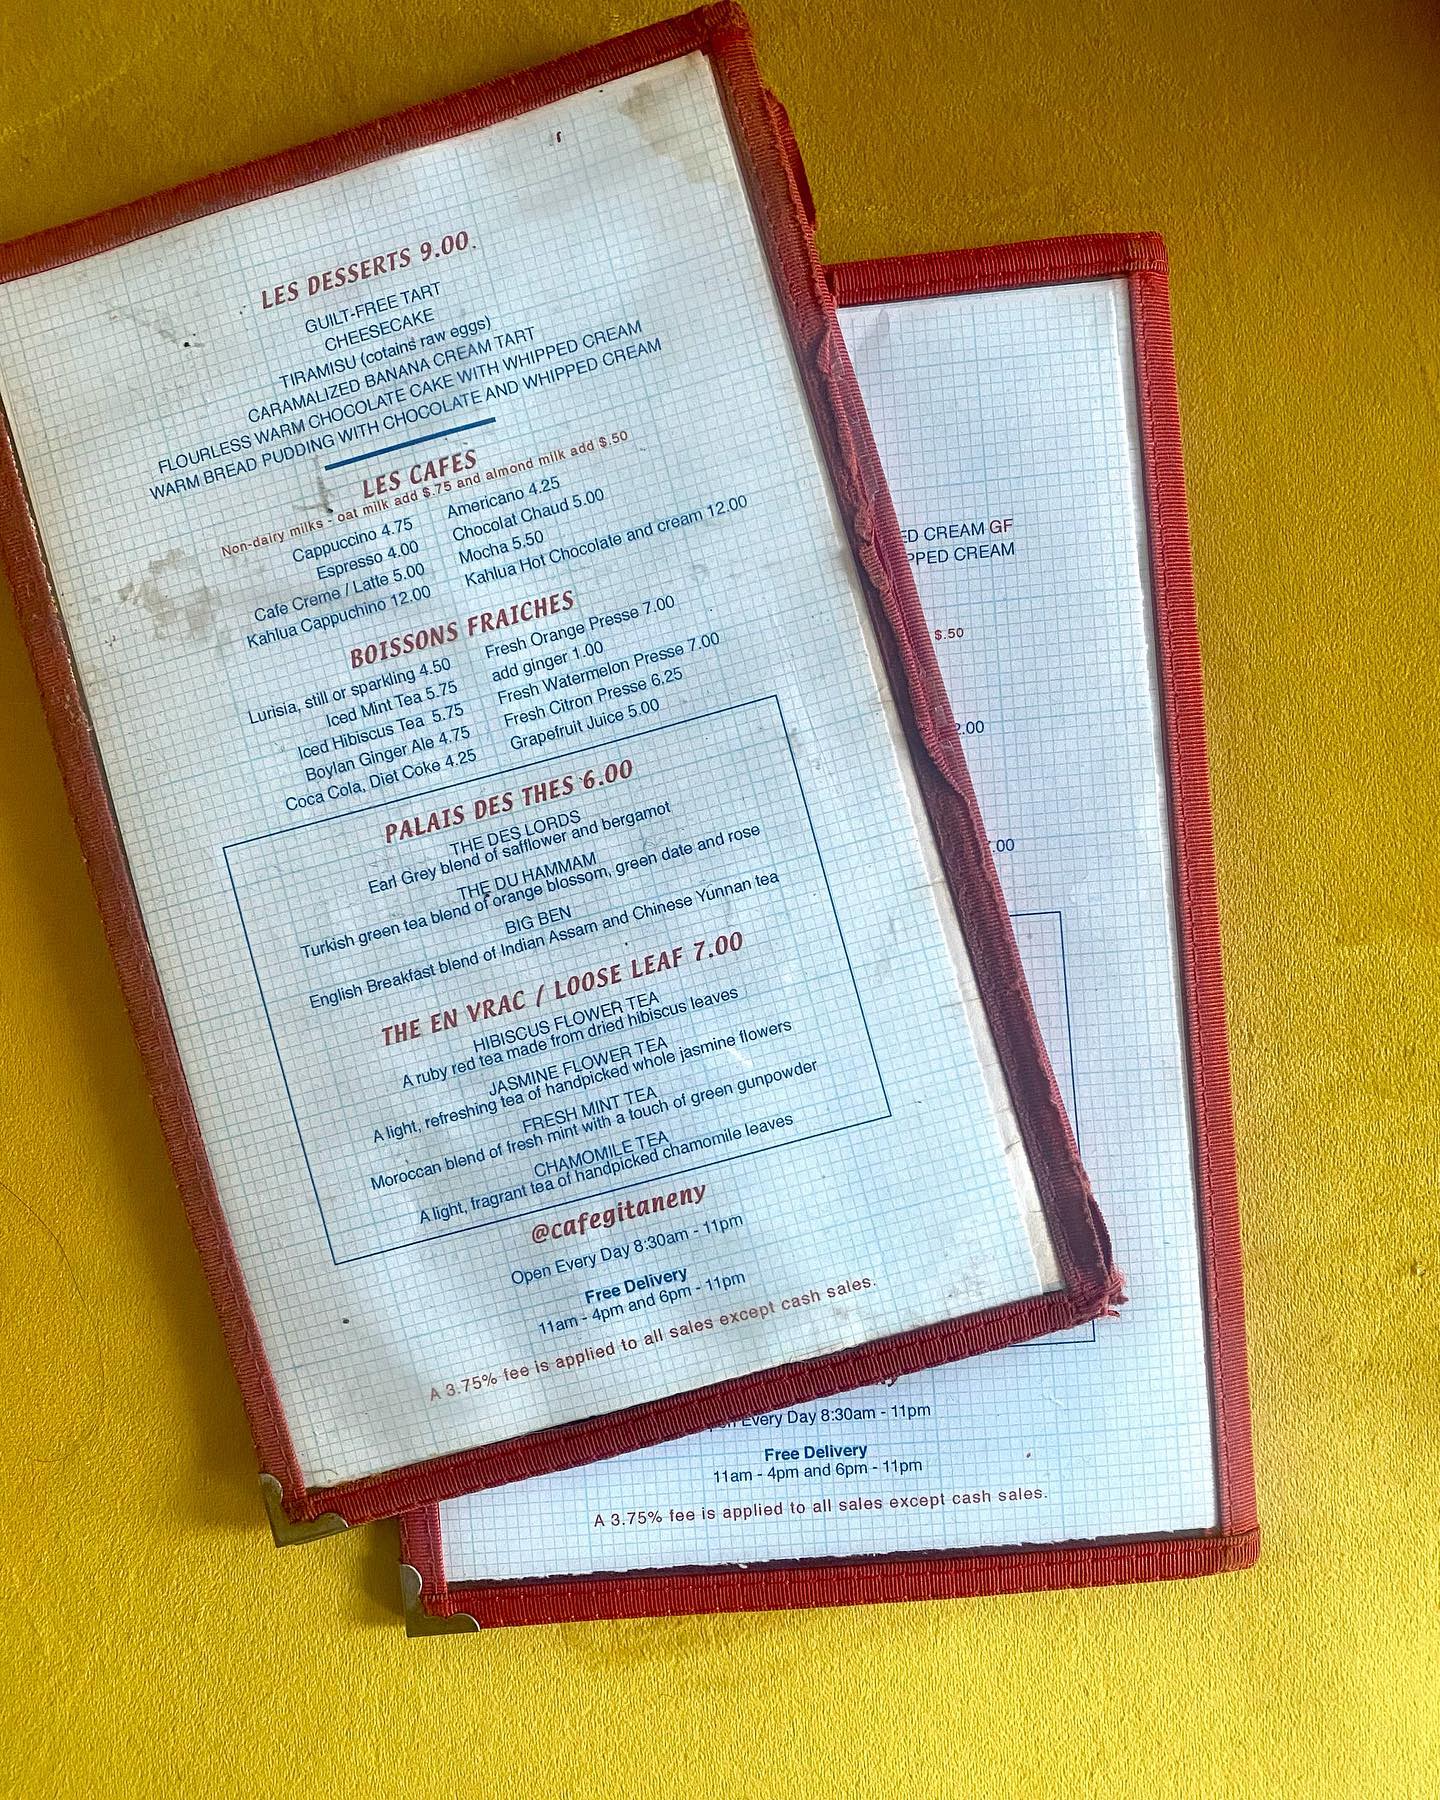 LES DESSERTS 9.00.
GUILT-FREE TART
CHEESECAKE
TIRAMISU (cotains raw eggs)
CARAMALIZED BANANA CREAM TART
FLOURLESS WARM CHOCOLATE CAKE WITH WHIPPED CREAM
WARM BREAD PUDDING WITH CHOCOLATE AND WHIPPED CREAM
LES CAFES
Non-dairy milks - oat milk add $.75 and almond milk add $.50
Cappuccino 4.75
Espresso 4.00
Cafe Creme / Latte 5.00
Kahlua Cappuchino 12.00
Americano 4.25
Chocolat Chaud 5.00
Mocha 5.50
Kahlua Hot Chocolate and cream 12.00
BOISSONS FRAICHES
Lurisia, still or sparkling 4.50
Iced Mint Tea 5.75
Iced Hibiscus Tea 5.75
Boylan Ginger Ale 4.75
Coca Cola, Diet Coke 4.25
Fresh Orange Presse 7.00
add ginger 1.00
Fresh Watermelon Presse 7.00
Fresh Citron Presse 6.25
Grapefruit Juice 5.00
PALAIS DES THES 6.00
THE DES LORDS
Earl Grey blend of safflower and bergamot
THE DU HAMMAM
Turkish green tea blend of orange blossom, green date and rose
BIG BEN
English Breakfast blend of Indian Assam and Chinese Yunnan tea
THE EN VRAC / LOOSE LEAF 7.00
HIBISCUS FLOWER TEA
A ruby red tea made from dried hibiscus leaves
JASMINE FLOWER TEA
A light, refreshing tea of handpicked whole jasmine flowers
FRESH MINT TEA
Moroccan blend of fresh mint with a touch of green gunpowder
CHAMOMILE TEA
A light, fragrant tea of handpicked chamomile leaves
@cafegitaneny
Open Every Day 8:30am - 11pm
Free Delivery
11am - 4pm and 6pm - 11pm
A 3.75% fee is applied to all sales except cash sales.
ED CREAM GF
PPED CREAM
$.50
2.00
.00
Every Day 8:30am - 11pm
Free Delivery
11am - 4pm and 6pm - 11pm
A 3.75% fee is applied to all sales except cash sales.